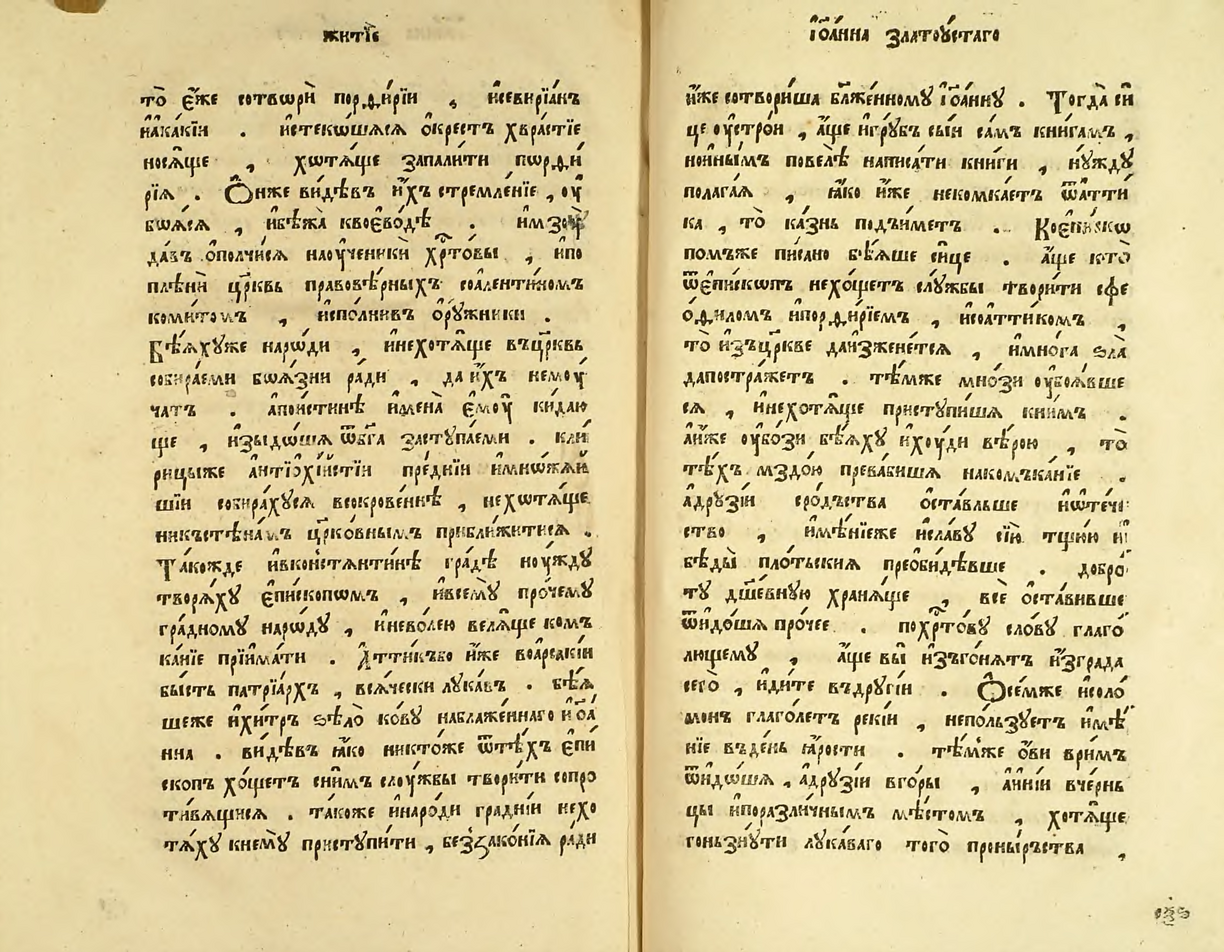 житїѐ
то̀ є҆́же сотвѡрѝ порⱷи́рїи , исевирїа́нъ
нака́кїи . и҆стекѡ́шаѧсѧ ѡ҆́крестъ хвра́стїе
носѧ́ще , хѡтѧ́ще запали́ти пѡрⱷи́
рїѧ . Ѻ҆́нже ви́дѣвъ и҆́хъ стремле́нїе , оу҆
боѧ́сѧ , ибѣжа̀ квоєво́дѣ .
да́въ ѡполчи́сѧ наоу҆ченикѝ хрⷭ҇то́вы , ипо
плѣнѝ цр҃квь правовѣ́рныхъ соале́нтиномъ
комитомъ , испо́лнивъ ѻ҆рꙋ́жники .
Бѣѧ́хꙋже наро́ди , инехотѧ́ще въцр҃квь
собира́еми боѧ́зни ра́ди , да и҆́хъ немоу́
чатъ . апои́стинѣ и҆мена̀ є҆моу̀ кида́ю
ще , и҆зыдо́шѧ ѿбг҃а заступа́еми . кли
рицыже а҆нтїѻхі́йстїи пре́днїи имнѡжа́й
шїи собира́хꙋсѧ веокрове́ннѣ , нехотѧ́ще
никъстѣна́мъ цр҃ко́внымъ прибли́житисѧ .
Та́кожде и҆вконстѧнти́нѣ гра́дѣ ноу́ждꙋ
творѧ́хꙋ є҆пи́скопомъ , ивсемꙋ̀ про́чемꙋ
гра́дномꙋ наро́дꙋ , иневолею велѧ́ще комъ
ка́нїе прїима́ти . А҆ттикъбо и҆́же воарса́кїи
бы́сть патрїа́рхъ , всѧ́чески лꙋка́въ . бѣѧ́
шеже ихи́тръ ѕѣло̀ ко́вꙋ наблаже́ннаго иѻ҆а́
нна . ви́дѣвъ ꙗ҆́ко никто́же ѿтѣ́хъ є҆пи́
скопъ хо́щетъ сни́мъ слоу́жбы твори́ти сопро
ти́вѧщисѧ . та́коже инаро́ди гра́днїи нехо
тѧ́хꙋ кнемꙋ̀ пристꙋпи́ти , беззако́нїѧ ра́ди
і҆ѻа́нна златоу́стаго
и҆́же сотвори́ша блаже́нномꙋ і҆ѻа́ннꙋ . Тогда̀ си́
це оу҆стро́и , а҆́ще игрꙋ́бъ сы́и са́мъ книгамъ ,
нои́нымъ повелѣ̀ написа́ти кни́ги , нꙋ́ждꙋ
полага́ѧ , ꙗ҆́ко и҆́же некомка́етъ ѿа́тти
ка , то̀ ка́знь подъи́метъ . Коєпи́скѡ
помъже пи́сано бѣ́ѧше си́це . а҆́ще кто̀
ѿєпи́скопъ нехо́щетъ слꙋ́жбы твори́ти сⱷе
ѻ҆́ⱷиломъ ипорⱷи́рїемъ , исоа́ттикомъ ,
то̀ и҆зъцр҃кве даизжене́тсѧ , имнѡ́га ѕла̀
дапостра́жетъ . тѣ́мже мно́зи оу҆боѧ́вше
сѧ , инехотѧ́ще пристꙋпи́шѧ кни́мъ .
а҆и́же оу҆бо́зи бѣѧ́хꙋ ихоу́ди вѣ́рою , то̀
тѣ́хъ мздо́ю превабишѧ накомъка́нїе .
адрꙋзі́и сро́дъства ѡ҆ста́вльше иѡте́че
ство , и҆мѣ́нїеже исла́вꙋ сїю̀ тщꙋ́ю и҆
бѣ́ды̀ пло́тьскиѧ преоби́дѣвше . добро
тꙋ дш҃е́внꙋю хранѧ́ще , всѐ ѡ҆ста́вивше
ѿидо́шѧ про́чее . похрⷭ҇то́вꙋ сло́вꙋ глаго́
лющемꙋ , а҆́ще вы̀ и҆зъго́нѧтъ и҆зграда
сего̀ , иди́те въдрꙋгі́и . Ѻ҆се́мже исоло
мо́нъ глаго́летъ реки́и , непо́льзꙋетъ и҆мѣ́
нїе въде́нь ꙗ҆́рости . тѣ́мже ѻ҆́ви ври́мъ
ѿидо́шѧ , адрꙋзі́и вго́ры , а҆и́нїи вче́рнь
цы ипоразли́чнымъ мѣ́стомъ , хотѧ́ще
гоньзнꙋ́ти лꙋка́ваго того̀ проны́рьства ,